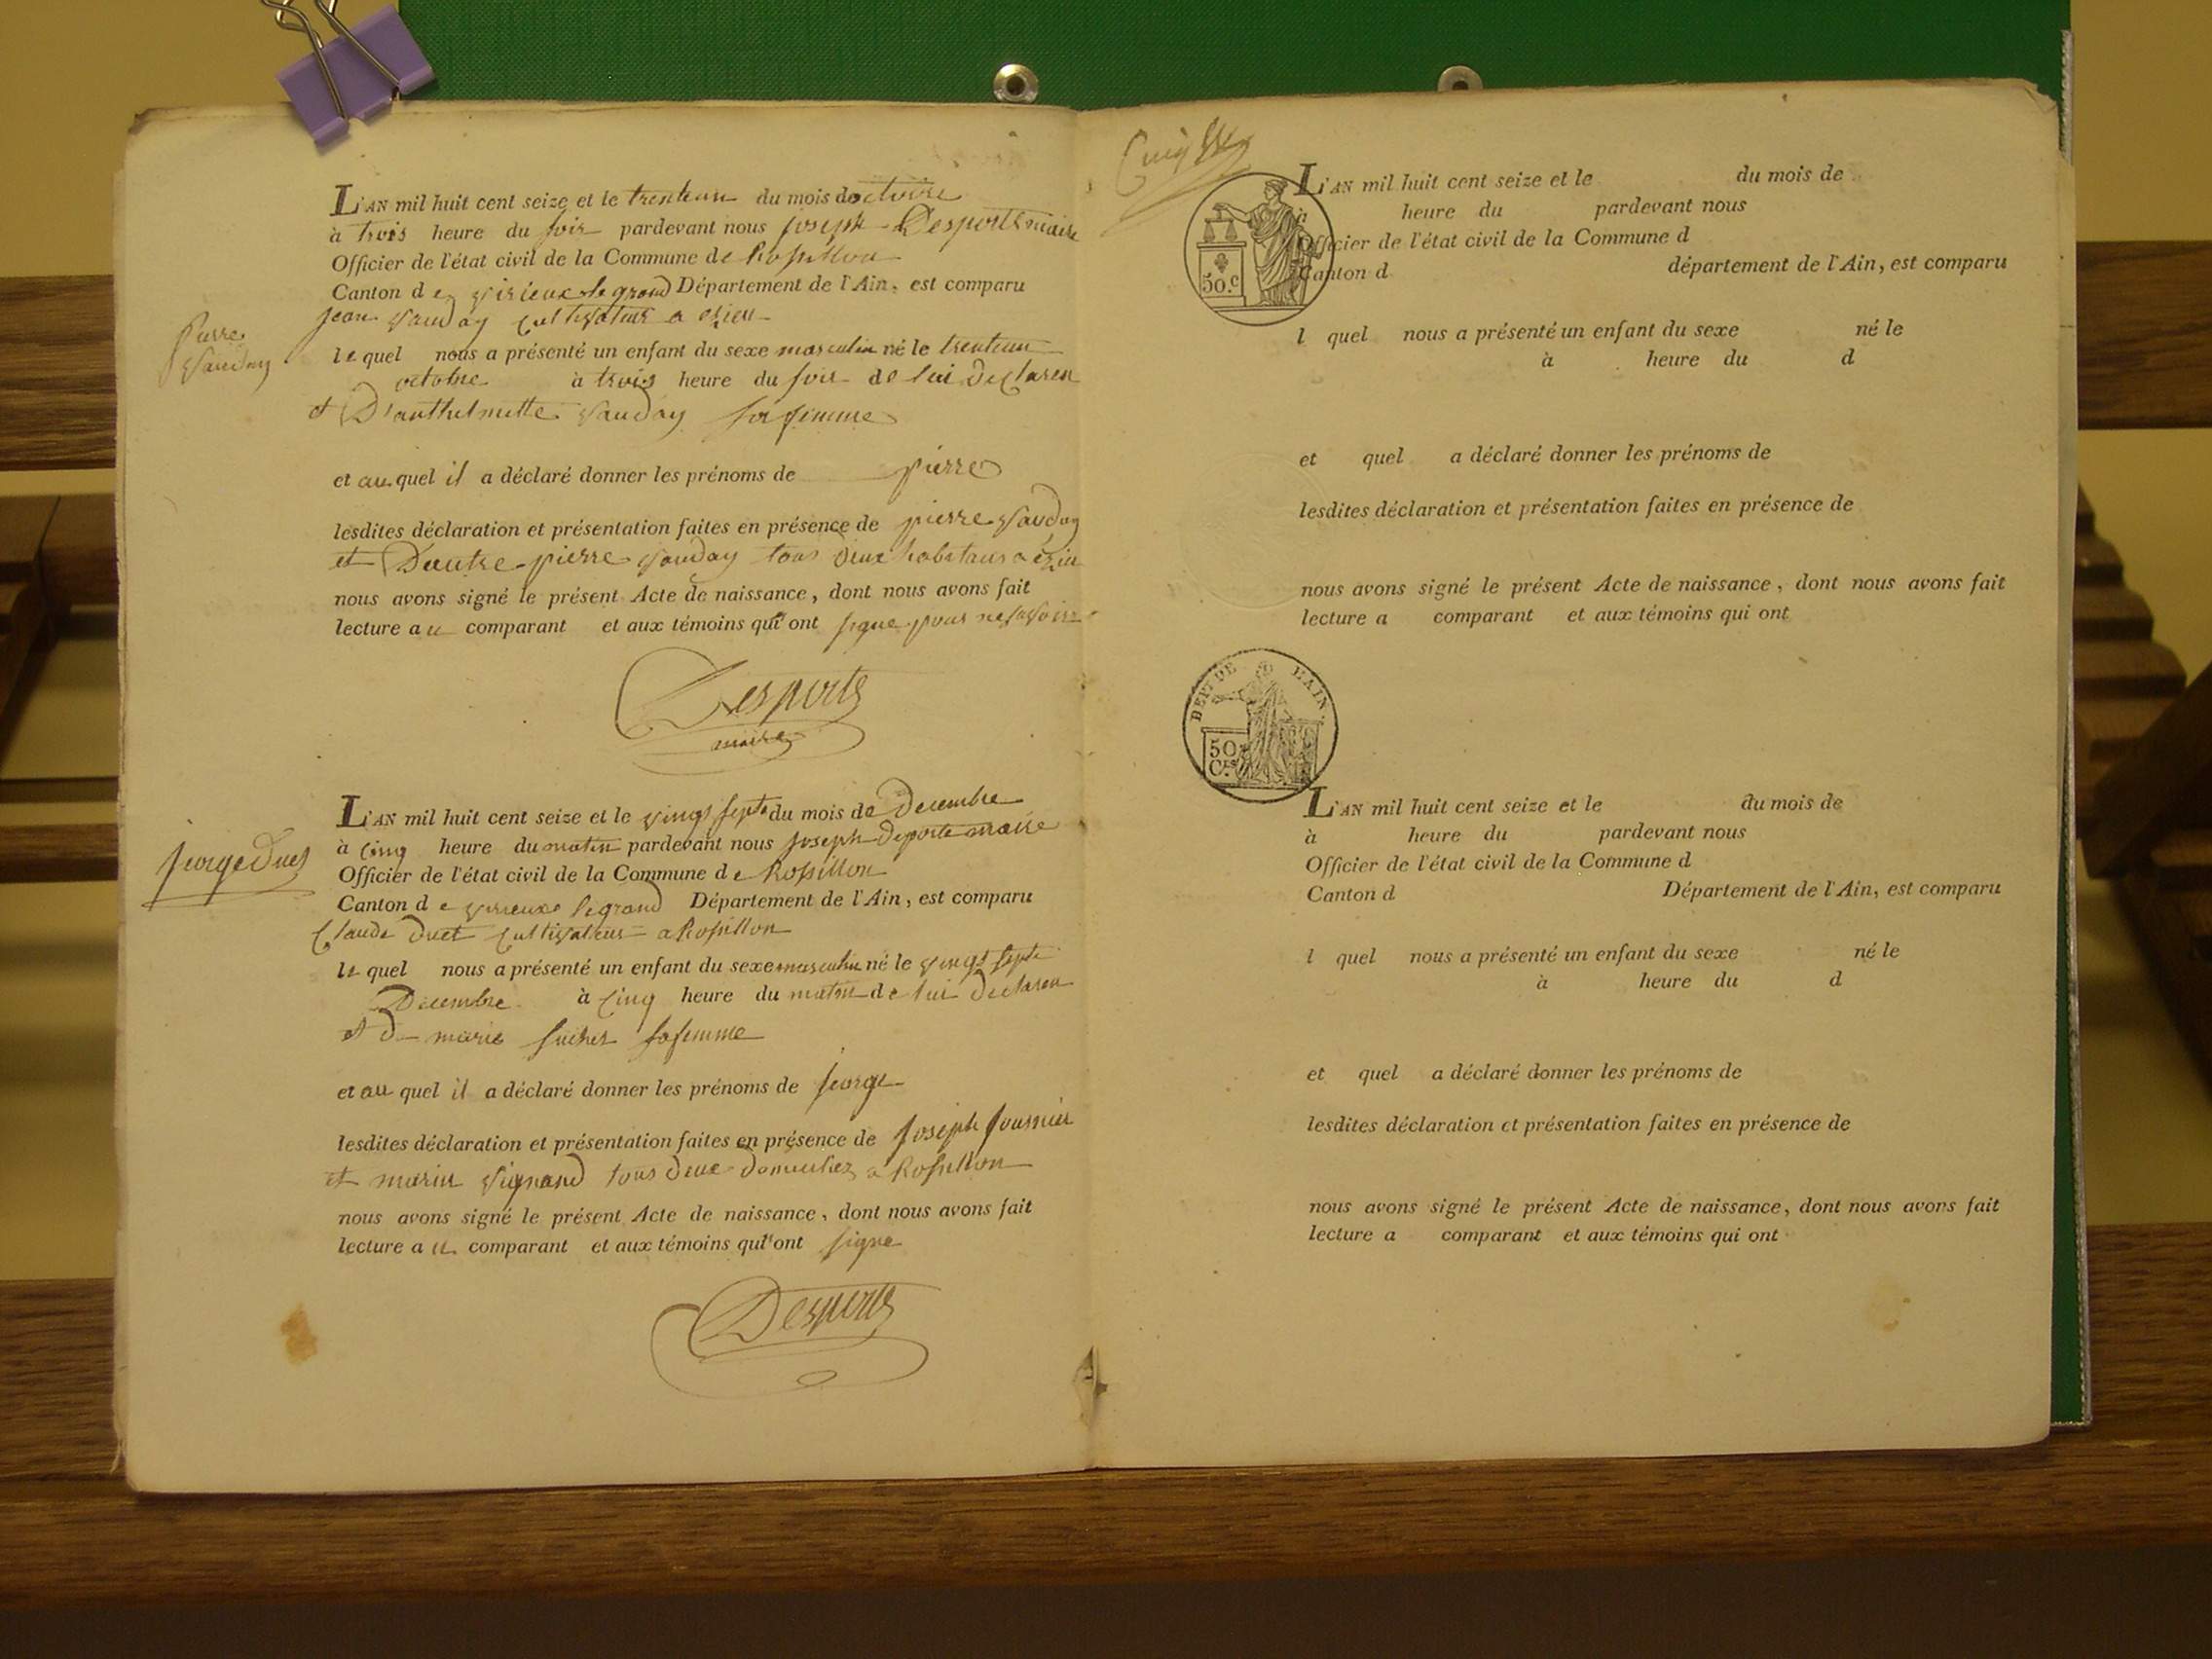 L'AN mil huit cent seize et le trenteun du mois doctoire
à trois heure du soir pardevant nous joseph Desports maire
Officier de l'état civil de la Commune de Rossillon
Canton de virieux le grand Département de l'Ain, est comparu
jean vauday cultivateur a ezieu
Pierre
vauday
le quel nous a présenté un enfant du sexe masculin né le trenteun
octobre à trois heure du soir de lui declaren
et D'anthelmette vauday sa femme
et au quel il a déclaré donner les prénoms de pierre
lesdites déclaration et présentation faites en présence de pierre vauday
et Dautre pierre vauday tous deux habitans a ezieu
nous avons signé le présent Acte de naissance, dont nous avons fait
lecture au comparant et aux témoins qui ont signe pour ne savoir
Desports
maire
L'AN mil huit cent seize et le vingt sept du mois de Decembre
à cinq heure du matin pardevant nous joseph Deporte maire
jeorge Duet
Officier de l'état civil de la Commune de Rossillon
Canton de virieux legrand Département de l'Ain, est comparu
Claude Duet cultivateur a Rossillon
le quel nous a présenté un enfant du sexe masculin né le vingt sept
Decembre à cinq heure du matin de lui declaren
et de marie sa femme
et au quel il a déclaré donner les prénoms de jeorge
lesdites déclaration et présentation faites en présence de joseph fournier
et marin vignand tous deux domicilies a Rossillon
nous avons signé le présent Acte de naissance, dont nous avons fait
lecture au comparant et aux témoins qui ont signe
Desports
L'AN mil huit cent seize et le du mois de
à heure du pardevant nous
Officier de l'état civil de la Commune d
Canton d département de l'Ain, est comparu
50.c
l quel nous a présenté un enfant du sexe né le
à heure du d
et quel a déclaré donner les prénoms de
lesdites déclaration et présentation faites en présence de
nous avons signé le présent Acte de naissance, dont nous avons fait
lecture a comparant et aux témoins qui ont
DEPT. DE L'AIN.
50
Cs
L'AN mil huit cent seize et le du mois de
à heure du pardevant nous
Officier de l'état civil de la Commune d
Canton d Département de l'Ain, est comparu
l quel nous a présenté un enfant du sexe né le
à heure du d
et quel a déclaré donner les prénoms de
lesdites déclaration et présentation faites en présence de
nous avons signé le présent Acte de naissance, dont nous avons fait
lecture a comparant et aux témoins qui ont